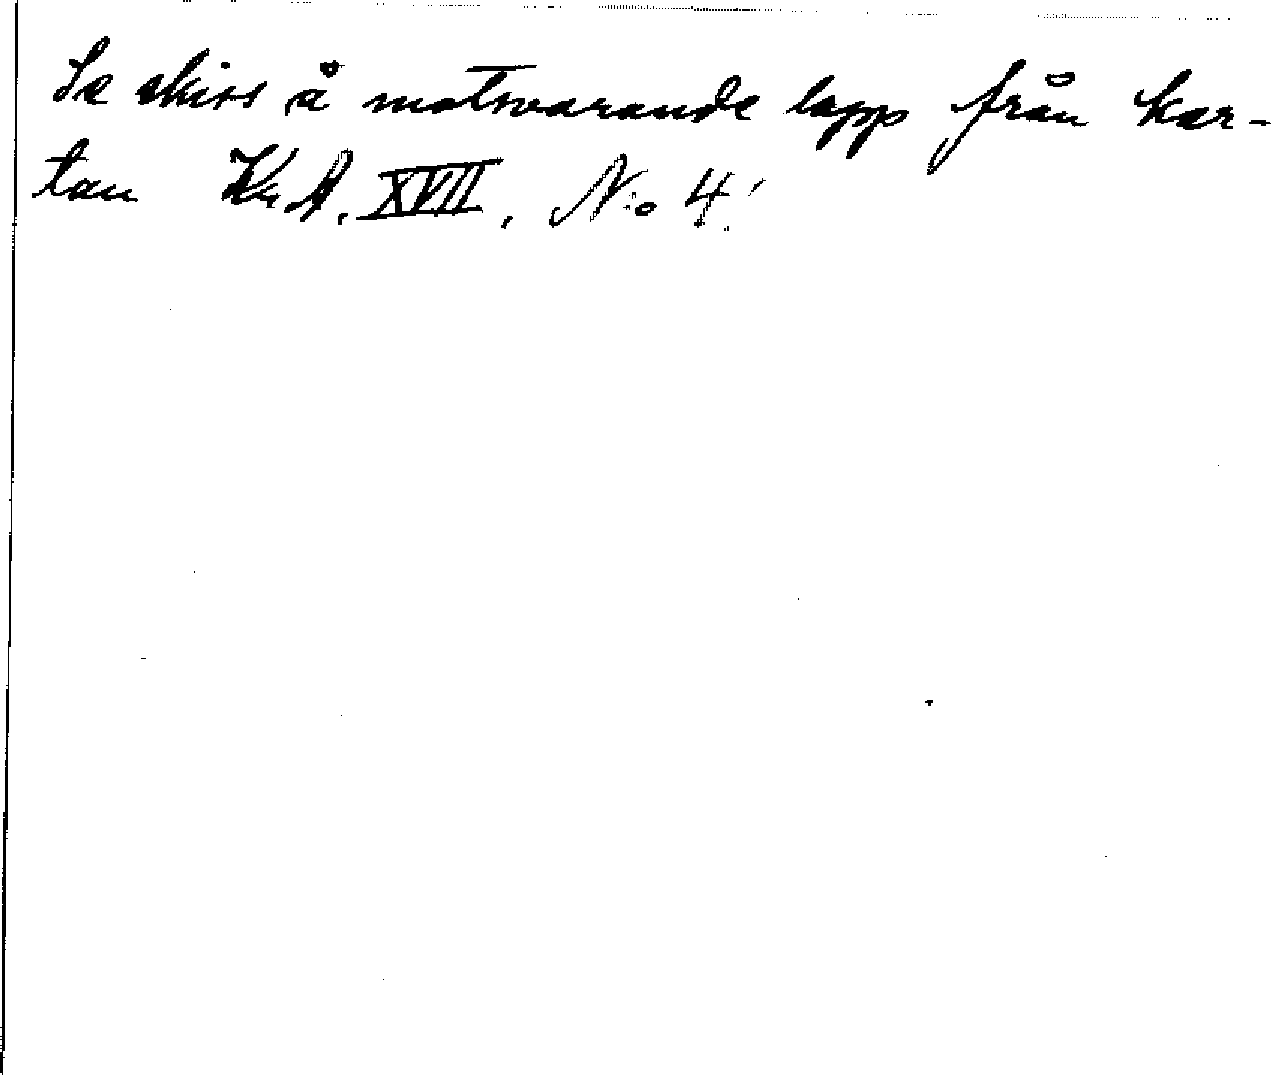 Se skiss å motsvarande lapp från kar-
tan Kr. A. XVII, No 4.